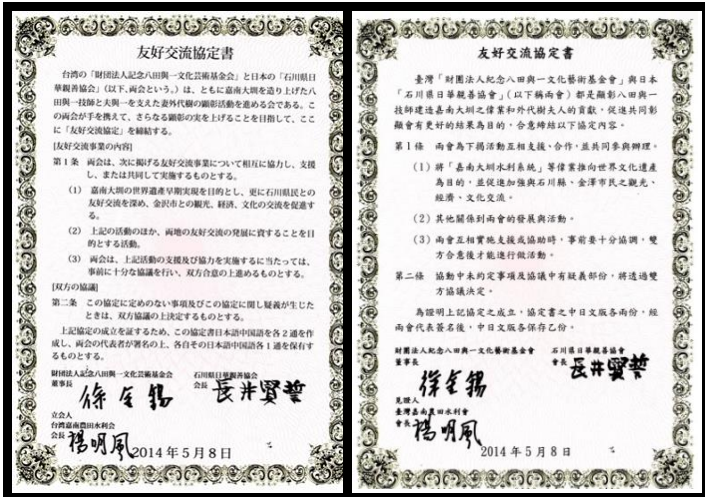 友好交流協定書
台湾の「財団法人記念八田與一文化芸術基金会」と日本の「石川県日
華親善協会」(以下、両会という。)は、ともに嘉南大圳を造り上げた八
田與一技師と夫與一を支えた妻外代樹の顕彰活動を進める会である。こ
の両会が手を携えて、さらなる顕彰の実を上げることを目指して、ここ
に「友好交流協定」を締結する。
[友好交流事業の内容]
第1条 両会は、次に掲げる友好交流事業について相互に協力し、支援
し、または共同して実施するものとする。
(1) 嘉南大圳の世界遺産早期実現を目的とし、更に石川県民との
友好交流を深め、金沢市との観光、経済、文化の交流を促進す
る。
(2) 上記の活動のほか、両地の友好交流の発展に資することを目
的とする活動。
(3) 両会は、上記活動の支援及び協力を実施するに当たっては、
事前に十分な協議を行い、双方合意の上進めるものとする。
[双方の協議]
第二条 この協定に定めのない事項及びこの協定に関し疑義が生じた
ときは、双方協議の上決定するものとする。
上記協定の成立を証するため、この協定書日本語中国語を各2通を作
成し、両会の代表者が署名の上、各自その日本語中国語各1通を保有す
るものとする。
財団法人記念八田與一文化芸術基金会
董事長 徐金錫
石川県日華親善協会
会長 長井賢誓
立会人
台湾嘉南農田水利会
会長 楊明風
2014年5月8日
友好交流協定書
臺灣「財團法人紀念八田與一文化藝術基金會」與日本
「石川県日華親善協會」(以下兩會)都是顯彰八田與一
技師建造嘉南大圳之偉業和外代樹夫人的貢獻,促進共同彰
顯會有更好的結果為目的,合意締結以下協定內容。
第1條 兩會為下揭活動互相支援、合作,並共同參與辦理。
(1) 將「嘉南大圳水利系統」等偉業推向世界文化遺產
為目的,並促進加強與石川縣、金澤市民之觀光、
經濟、文化交流。
(2) 其他關係到兩會的發展與活動。
(3) 兩會互相實施支援或協助時,事前要十分協調,雙
方合意後才能進行做活動。
第二條 協動中未約定事項及協議中有疑義部份,將透過雙
方協議決定。
為證明上記協定之成立,協定書之中日文版各兩份,經
兩會代表簽名後,中日文版各保存乙份。
財團法人紀念八田與一文化藝術基金會
董事長 徐金錫
石川県日華親善協會
會長 長井賢誓
見證人
臺灣嘉南農田水利會
會長 楊明風
2014年5月8日